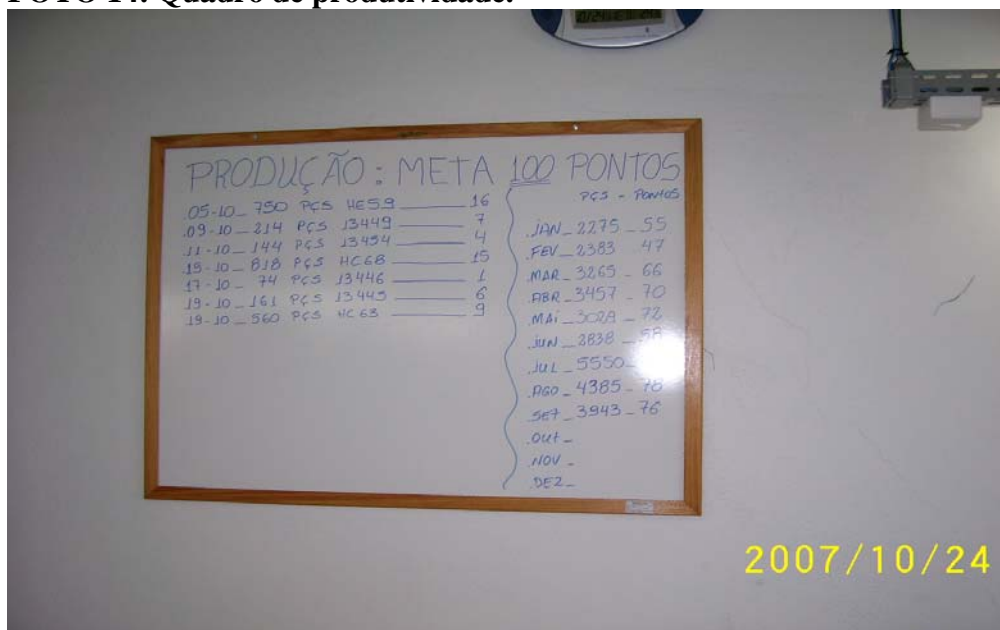 FOTO 14: Quadro de produtividade.
PRODUÇÃO: META 100 PONTOS
.05-10_ 750 PÇS HE59 _____ 16
.09-10_ 214 PÇS 13449 _____ 7
.11-10_ 144 PÇS 13454 _____ 4
.15-10_ 818 PÇS HC68 _____ 15
.17-10_ 74 PÇS 13446 _____ 1
.19-10_ 161 PÇS 13445 _____ 6
.19-10_ 560 PÇS HC63 _____ 9
PÇS - PONTOS
.JAN_2275_55
.FEV_2383 47
.MAR_3265_66
.ABR_3457_70
.MAi_3028_72
.JUN_2838_58
.JUL_5550_
.AGO_4385_78
.SET_3943_76
.OUT_
.NOV_
.DEZ_
2007/10/24